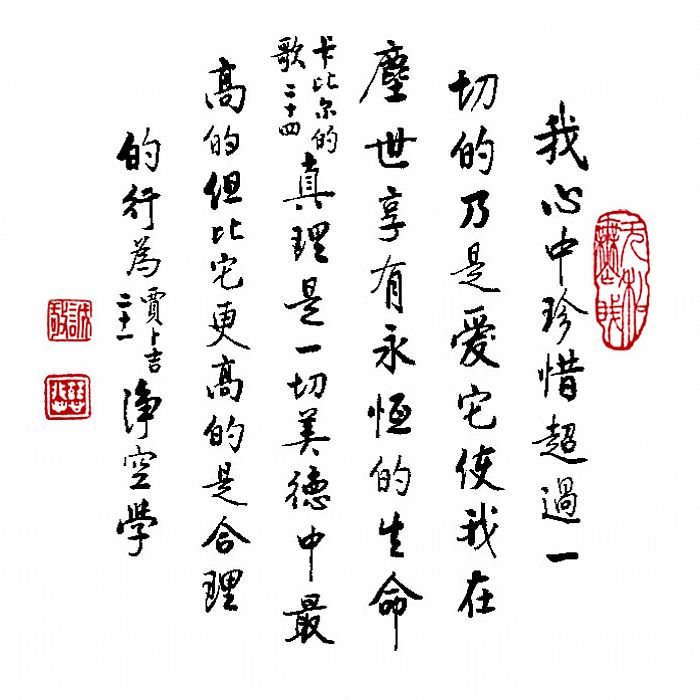 我心中珍惜超過一
切的乃是愛它使我在
塵世享有永恆的生命
卡比尔的
歌二十四
真理是一切美德中最
高的但比它更高的是合理
的行為
賈卜吉
二十一
淨空學
誠敬